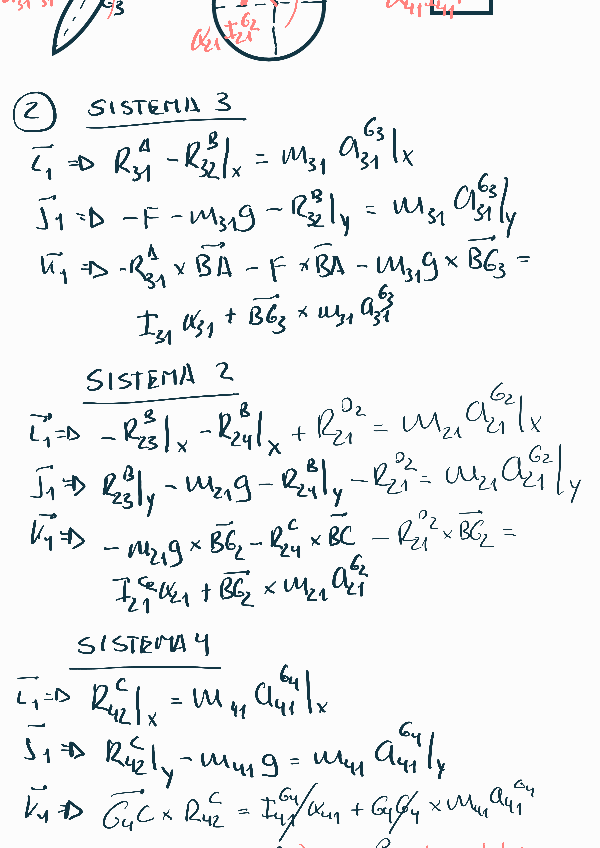 G3 α21 I21^G2
② SISTEMA 3
i⃗1 ⇒ R31^A − R32^B|x = m31 a31^G3|x
j⃗1 ⇒ −F − m31g − R32^B|y = m31 a31^G3|y
k⃗1 ⇒ -R31^A × BA⃗ − F × BA⃗ − m31g × BG3⃗ =
I31 α31 + BG3⃗ × m31 a31^G3
SISTEMA 2
i⃗1 ⇒ −R23^B|x − R24^B|x + R21^O2 = m21 a21^G2|x
j⃗1 ⇒ R23^B|y − m21g − R24^B|y − R21^O2 = m21 a21^G2|y
k⃗1 ⇒ −m21g × BG2⃗ − R24^C × BC⃗ − R21^O2 × BG2⃗ =
I21^G2 α21 + BG2⃗ × m21 a21^G2
SISTEMA 4
i⃗1 ⇒ R42^C|x = m41 a41^G4|x
j⃗1 ⇒ R42^C|y − m41g = m41 a41^G4|y
k⃗1 ⇒ G4C⃗ × R42^C = I41^G4 α41 + G4G4 × m41 a41^G4